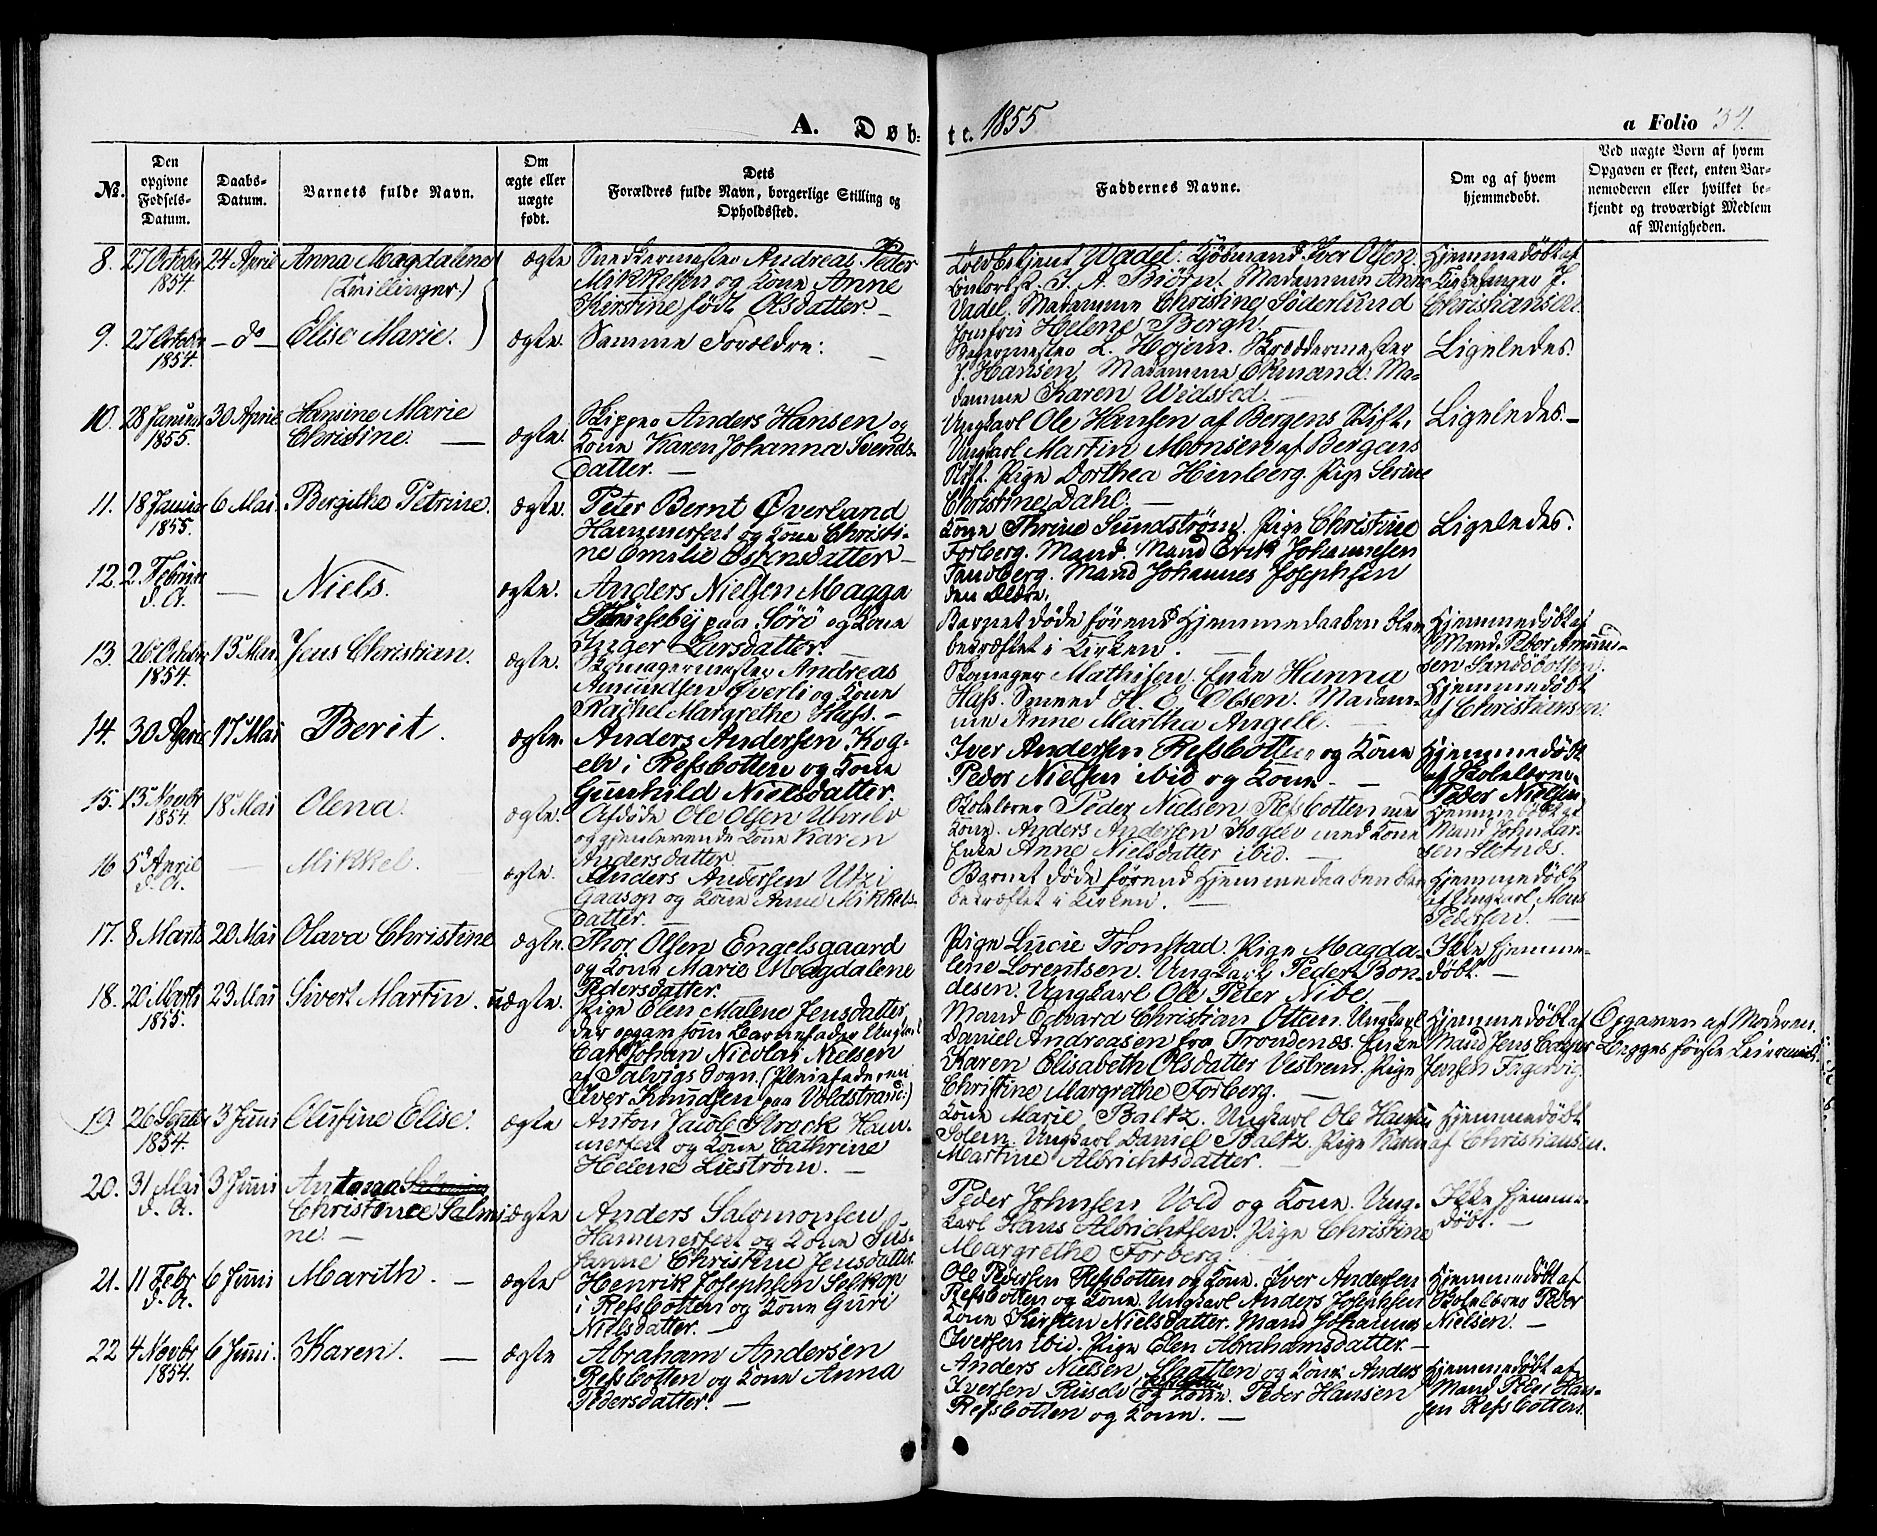 A. Døb-
te. 1855
a Folio 34.
No.
Den opgivne Fødsels-Datum.
Daabs-Datum.
Barnets fulde Navn.
Om ægte eller uægte født.
Dets Forældres fulde Navn, borgerlige Stilling og Opholdssted.
Faddernes Navne.
Om og af hvem hjemmedøbt.
Ved uægte Børn af hvem Opgaven er skeet, enten Barnemoderen eller hvilket bekjendt og troværdigt Medlem af Menigheden.
8. 27 October 1854. 24 April Anna Magdalene (Tvillinger.) ægte
Snedkermester Andreas Peder
Mikkelsen og Kone Anne
Kirstine født Olsdatter. —
Toldbetjent Wadel. Kjøbmand Iver Olsen.
J. A. Biörn. Madammen Anne
Vadel. Madamme Christine Söderlund
Jomfru Helene Bergh.
Hjemmedøbt af
Kirkesanger J.
Christiansen.
9. 27 October 1854. — do — Elise Marie. ægte.
Samme Forældre: —
Bagermester L. Højem. Skræddermester
J. Hansen. Madamme Ekmand. Ma-
damme Karen Widsted. —
Ligeledes.
10. 28 Januar 1855. 30 April Hansine Marie Christine. — ægte.
Skipper Anders Hansen og
Kone Karen Johanna Svends-
datter. —
Ungkarl Ole Hansen af Bergens Stift,
Ungkarl Martin Monsen af Bergens
Stift. Pige Dorthea Himberg. Pige Serine
Christine Dahl. —
Ligeledes. —
11. 18 Januar 1855. 6 Mai Bergithe Petrine. ægte.
Peter Bernt Øverland
Hammerfest og Kone Christi-
ne Emilie Esbensdatter —
Kone Thrine Sundstrøm. Pige Christine
Forberg. Mand. Mand Erik Johannesen
Tandberg. Mand Johannes Josephsen
den Ældre.
Ligeledes.
12. 2. Februar d. A. — Niels. ægte.
Anders Nielsen Magga
paa Sørø og Kone
Inger Larsdatter.
Barnet døde førend Hjemmedaaben blev
bekræftet i Kirken. —
Hjemmedøbt af
Mand Peder Amund-
sen Sandøbotten.
13. 26 October 1854. 13 Mai Jens Christian. ægte.
Skomagermester Andreas
Amundsen Øverli og Kone
Rachel Margrethe Hass. —
Skomager Mathisen. Enke Hanna
Hass. Smeed H. E. Olsen. Madam-
me Anne Martha Angell. —
Hjemmedøbt
af Christiansen.
14. 30 April 17 Mai Berit. ægte.
Anders Andersen Kog-
elv i Refsbotten og Kone
Gunhild Nielsdatter.
Iver Andersen Refsbotten og Kone
Peder Nielsen ibid og Kone. —
Hjemmedøbt
af Skolelærer
Peder Nielsen
15. 13 Novbr 1854. 18 Mai Olena. ægte.
Afdøde Ole Olsen
og gjenlevende Kone Karen
Andersdatter.
Skolelærer Peder Nielsen Refsbotten med
Kone. Anders Andersen Kogelv med Kone
Enke Anne Nielsdatter ibid. —
Hjemmedøbt af
Mand John Lar-
sen Sletnes.
16 5 April d. A. — Mikkel. — ægte.
Anders Andersen Utzi
Gaasop og Kone Anne Mikkels-
datter. —
Barnet døde førend Hjemmedaaben blev
bekræftet i Kirken. —
Hjemmedøbt
af Ungkarl Mons
Pedersen. —
17. 8 Marts 20 Mai Olava Christine ægte.
Thor Olsen Engelsgaard
og Kone Marie Magdalene
Pedersdatter.
Pige Lucie Tronstad. Pige Magda-
lene Lorentsen. Ungkarl Peder Bon-
desen. Ungkarl Ole Peter Nibe.
Ikke Hjemme-
døbt. —
18. 20 Marts 1855. 23 Mai Sivert Martin. uægte.
Pige Elen Malene Jensdatter,
der opgav som Barnefader Ungkarl
Carl Johan Nicolai Nielsen
af Talvigs Sogn. (Pleiefaderen
Iver Knudsen paa Voldstrand:)
Mand Edvard Christian Otten. Ungkarl
Daniel Andreasen fra Trondenæs. Enke
Karen Elisabeth Olsdatter Vestrem. Pige
Christine Margrethe Forberg. —
Hjemmedøbt af
Mand Jens
Jensen Fagervig
Opgaven af Moderen.
Begges første Leiermaal.
19. 26 Septbr 1854. 3 Juni Olufine Elise. ægte
Anton Jacob Strock Ham-
merfest og Kone Cathrine
Helene Liestrøm. —
Kone Marie Baltz. Ungkarl Ole Hansen
Solem. Ungkarl Daniel Baltz. Pige Karen
Martine Albrichtsdatter. —
Hjemmedøbt
af Christiansen.
20. 31 Mai d. A. 3 Juni Antona Christence Salmine. — ægte
Anders Salomonsen
Hammerfest og Kone Sus-
sanne Christine Jensdatter.
Peder Johnsen Vold og Kone. Ung-
karl Hans Albrichtsen. Pige Christine
Margrethe Forberg.
Ikke Hjemme-
døbt. —
21. 11 Febr d. A. 6 Juni Marith. — ægte
Henrik Josephsen Selkop
i Refsbotten og Kone Guri
Nielsdatter. —
Ole Pedersen Refsbotten og Kone. Iver Andersen
Refsbotten og Kone. Ungkarl Anders Josephsen
Kone Kirsten Nielsdatter. Mand Johannes
Iversen ibid. Pige Elen Abrahamsdatter. —
Hjemmedøbt af
Skolelærer Peder
Nielsen. —
22 4 Novbr 1854. 6 Juni. Karen. — ægte
Abraham Andersen
Refsbotten og Kone Anna
Pedersdatter. —
Anders Nielsen Slaatten og Kone Anders
Iversen Russelv og Kone. Peder Hansen
Refsbotten og Kone. —
Hjemmedøbt af
Mand Peder Han-
sen Refsbotten.